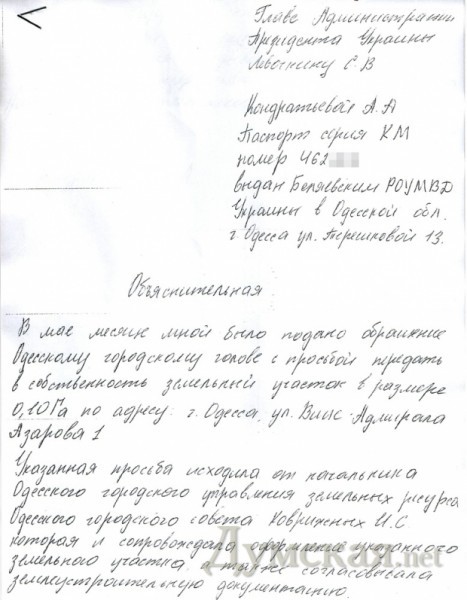 Главе Администрации
Президента Украины
Лёвочкину С В
Кондратьевой А.А
Паспорт серия КМ
номер 462
выдан Беляевским РОУМВД
Украины в Одесской обл.
г Одесса ул. Терешковой 13.
Объяснительная
В мае месяце мной было подано обращение
Одесскому городскому голове с просьбой передать
в собственность земельный участок в размере
0,10Га по адресу: г. Одесса, ул. Вице-Адмирала
Азарова 1
Указанная просьба исходила от начальника
Одесского городского управления земельных ресурса
Одесского городского совета Коврижных И.С.
которая и сопровождала оформление указанного
земельного участка а также согласовывала
землеустроительную документацию.
Думская.net